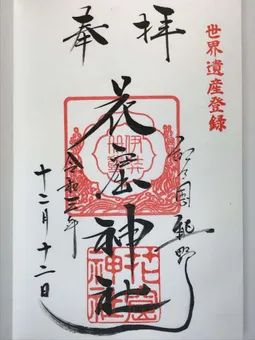 世界遺産登録
奉拝
紀の国熊野
花窟神社
令和三年
十二月十二日
花窟神社